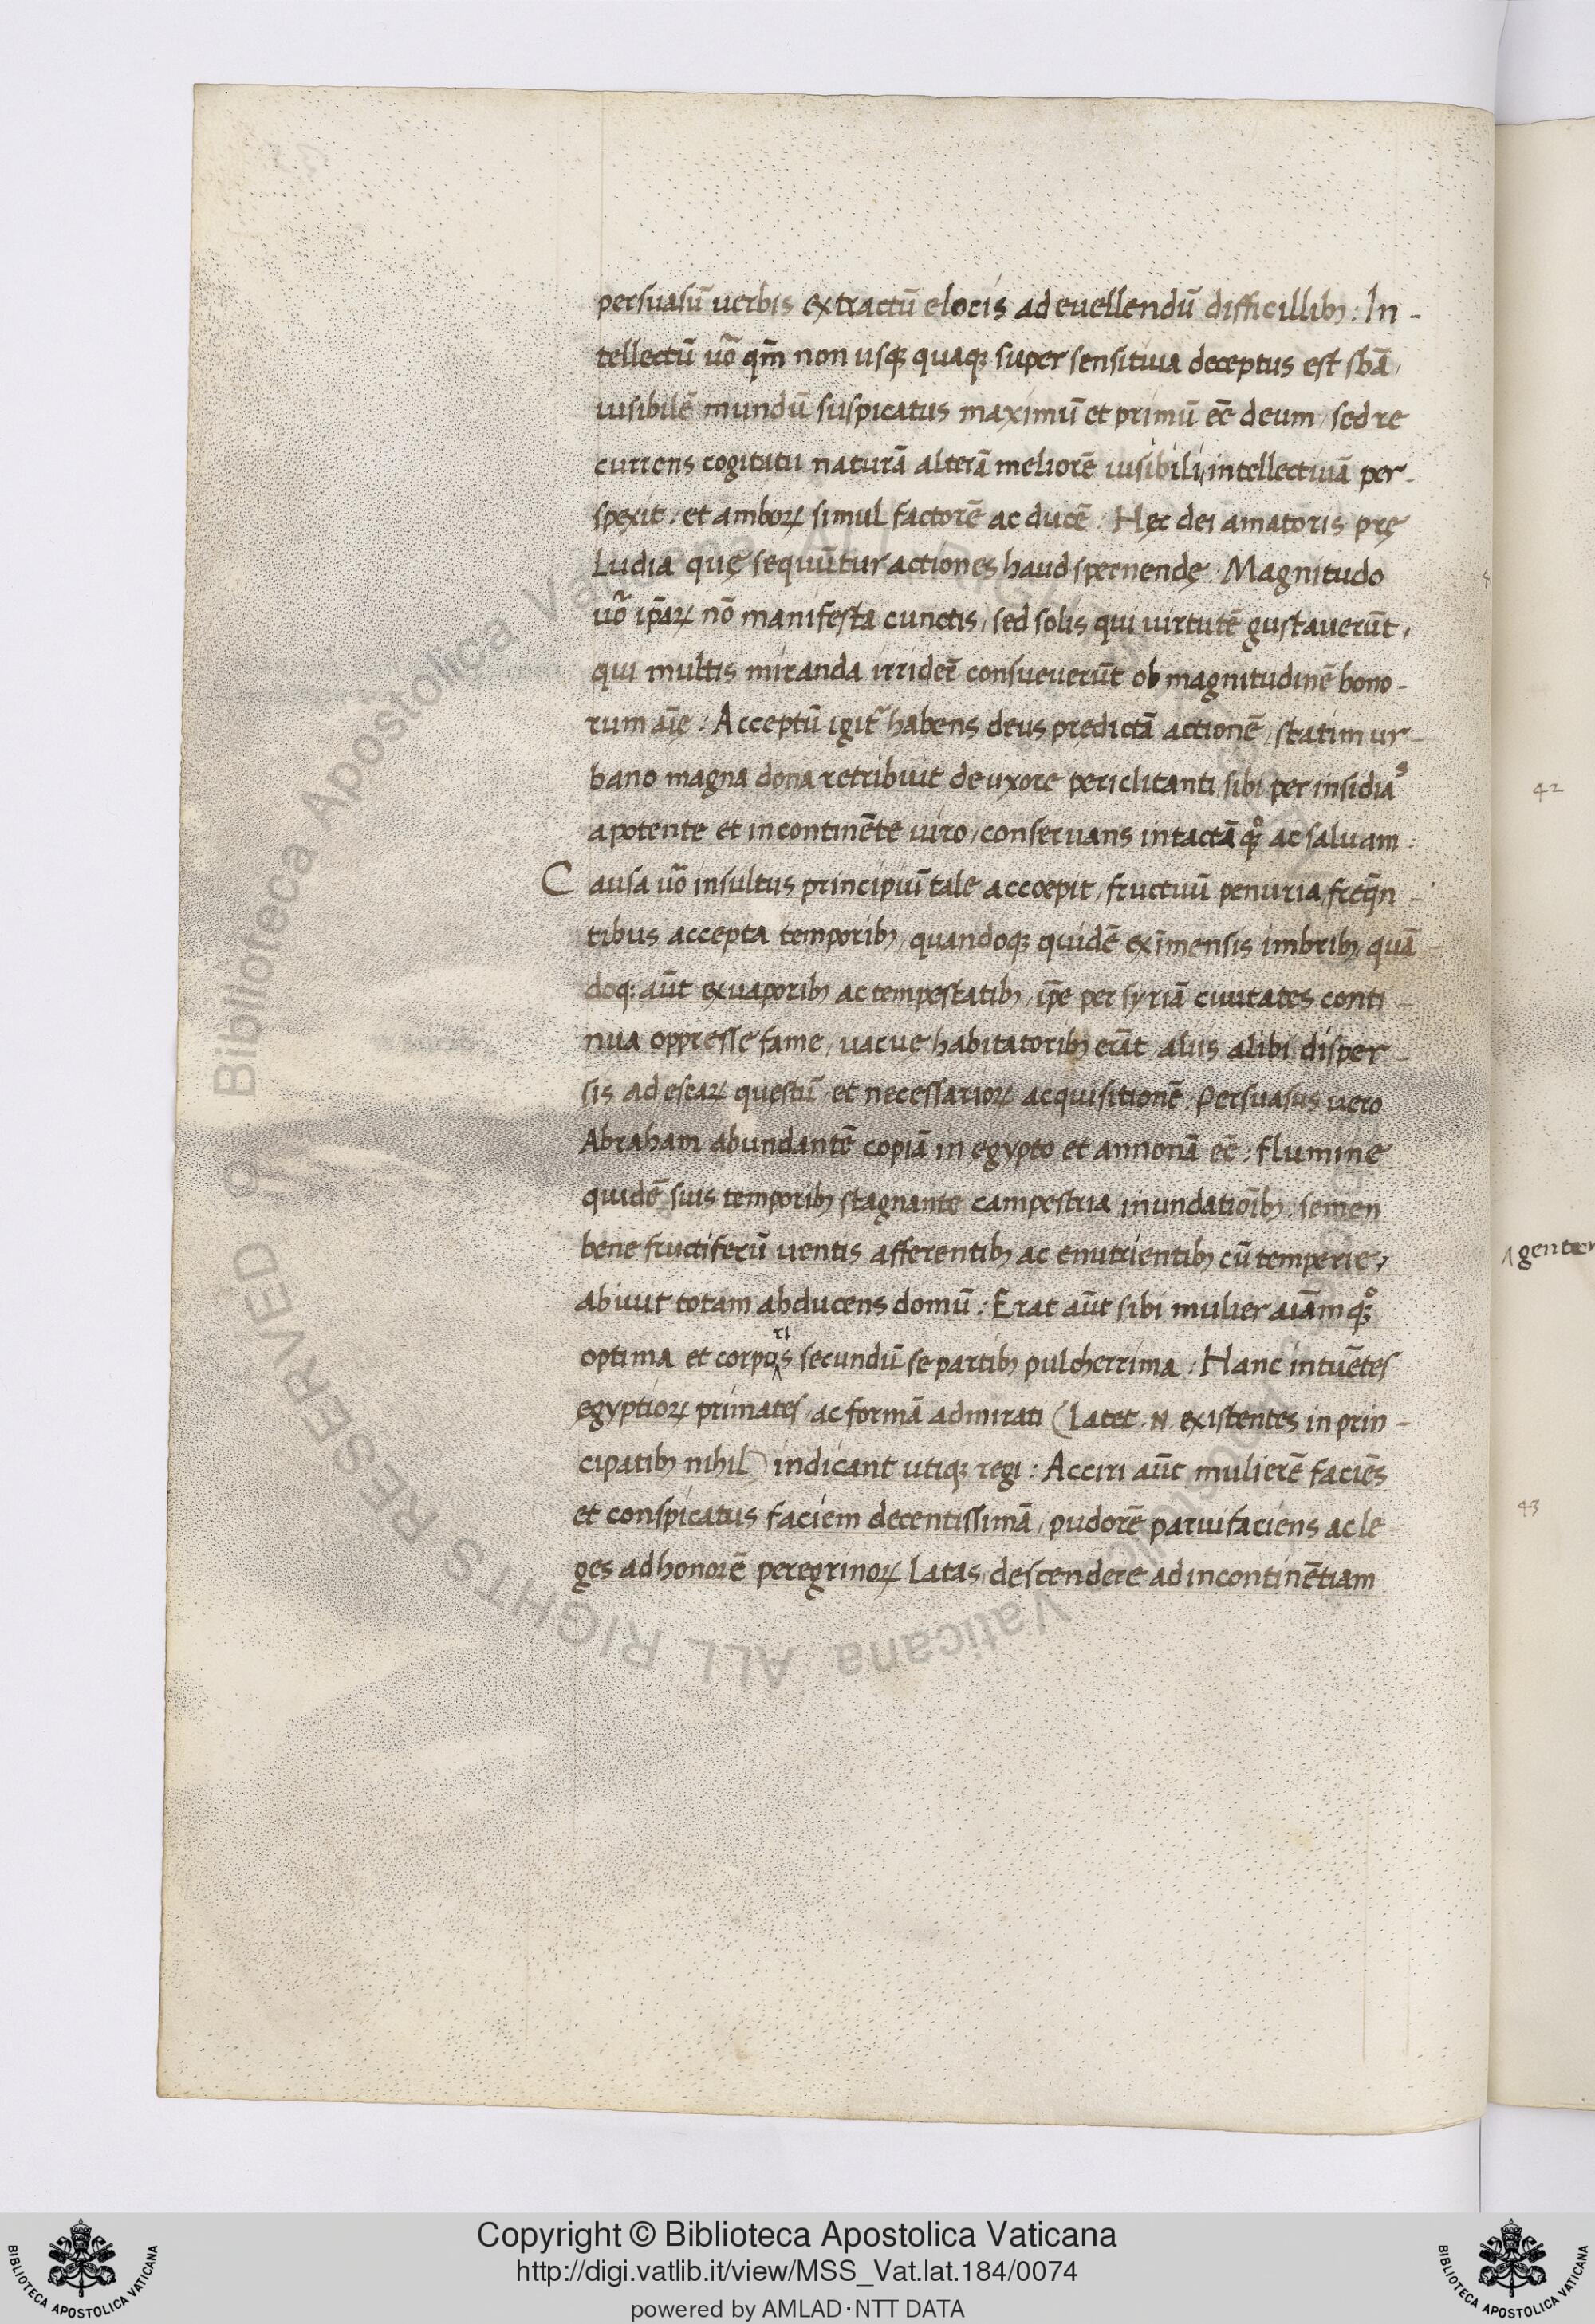 persuasū uerbis extractū elocis ad euellendū difficillibꝫ : In -
tellectū uō qm̄ non usqꝫ quaqꝫ super sensitiua deceptus est sbā,
uisibilē mundū suspicatus maximū et primū eē deum, sed re
currens cogitatu naturā alterā meliorē uisibili, intellectiuā per -
spexit : et amboꝝ simul factorē ac ducē : Hęc dei amatoris prę
ludia quę sequūtur actiones haud spernendę : Magnitudo
uō ip̄aꝝ nō manifesta cunctis, sed solis qui uirtutē gustauerūt,
qui multis miranda irriderē consueuerūt ob magnitudinē bono -
rum aīe : Acceptū igit̃ habens deus prędictā actionē, statim ur -
bano magna dona retribuit de uxore periclitanti sibi per insidias
a potente et incontinēte uiro, conseruans intactā qꝫ ac saluam :
Causa uō insultus principiū tale accoepit, fructuū penuria freq̄n -
tibus accepta temporibꝫ, quandoqꝫ quidē ex īmensis imbribꝫ, quā
doqꝫ aūt ex uaporibꝫ ac tempestatibꝫ, ip̄e per syriā ciuitates conti -
nua oppresse fame, uacue habitatoribꝫ erāt aliis alibi disper -
sis ad escaꝝ questū et necessarioꝝ acquisitionē. Persuasus uero
Abraham abundantē copiā in egypto et annonā eē : flumine
quidē suis temporibꝫ stagnante campestria inundatiōibꝫ : semen
bene fructiferū uentis afferentibꝫ ac enutrientibꝫ cū temperie,
abiuit totam abducens domū : Erat aūt sibi mulier aiām qꝫ
ri
optima et corpo^s secundū se partibꝫ pulcherrima : Hanc intuētes
egyptioꝝ primates, ac formā admirati (Latet .n. existentes in prin -
cipatibꝫ nihil) indicant utiqꝫ regi : Acciri aūt mulierē faciēs
et conspicatus faciem decentissimā, pudorē paruifaciens ac le
ges ad honorē peregrinoꝝ latas, descendere ad incontinētiam
42
43
Copyright © Biblioteca Apostolica Vaticana
http://digi.vatlib.it/view/MSS_Vat.lat.184/0074
powered by AMLAD·NTT DATA
BIBLIOTECA APOSTOLICA VATICANA
BIBLIOTECA APOSTOLICA VATICANA
Biblioteca Apostolica Vaticana ALL RIGHTS RESERVED ©